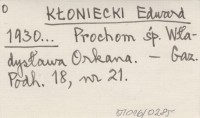 O
KŁONIECKI Edward
1930... Prochom śp. Wła-
dysława Orkana. — Gaz.
Podh. 18, nr 21.